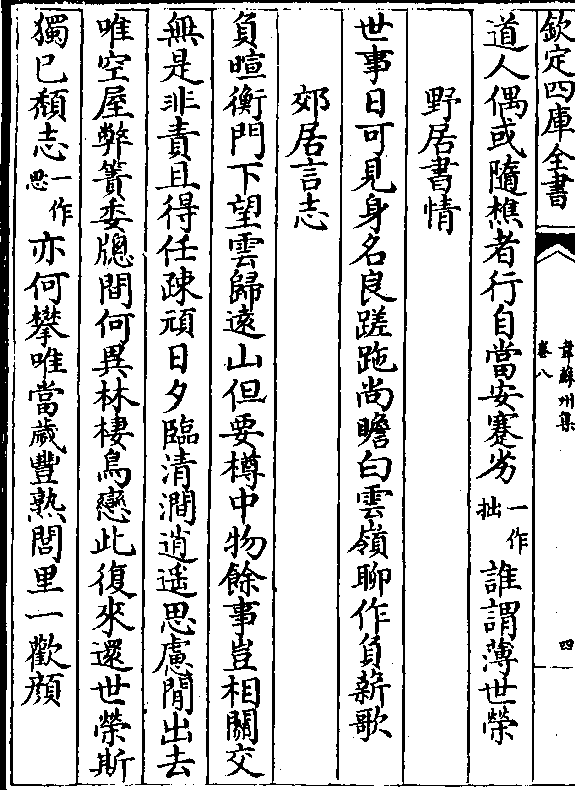 欽定四庫全書
韋蘇州集
卷八
四
道人偶或隨樵者行自當安蹇劣一作拙誰謂薄世榮
野居書情
世事日可見身名良蹉跎尚瞻白雲嶺聊作負薪歌
郊居言志
負暄衡門下望雲歸遠山但要樽中物餘事豈相關交
無是非責且得任疎頑日夕臨清澗逍遥思慮閒出去
唯空屋弊簀委牕間何異林棲鳥戀此復來還世榮斯
獨已頽志一作思亦何攀唯當歲豐熟閭里一歡顔